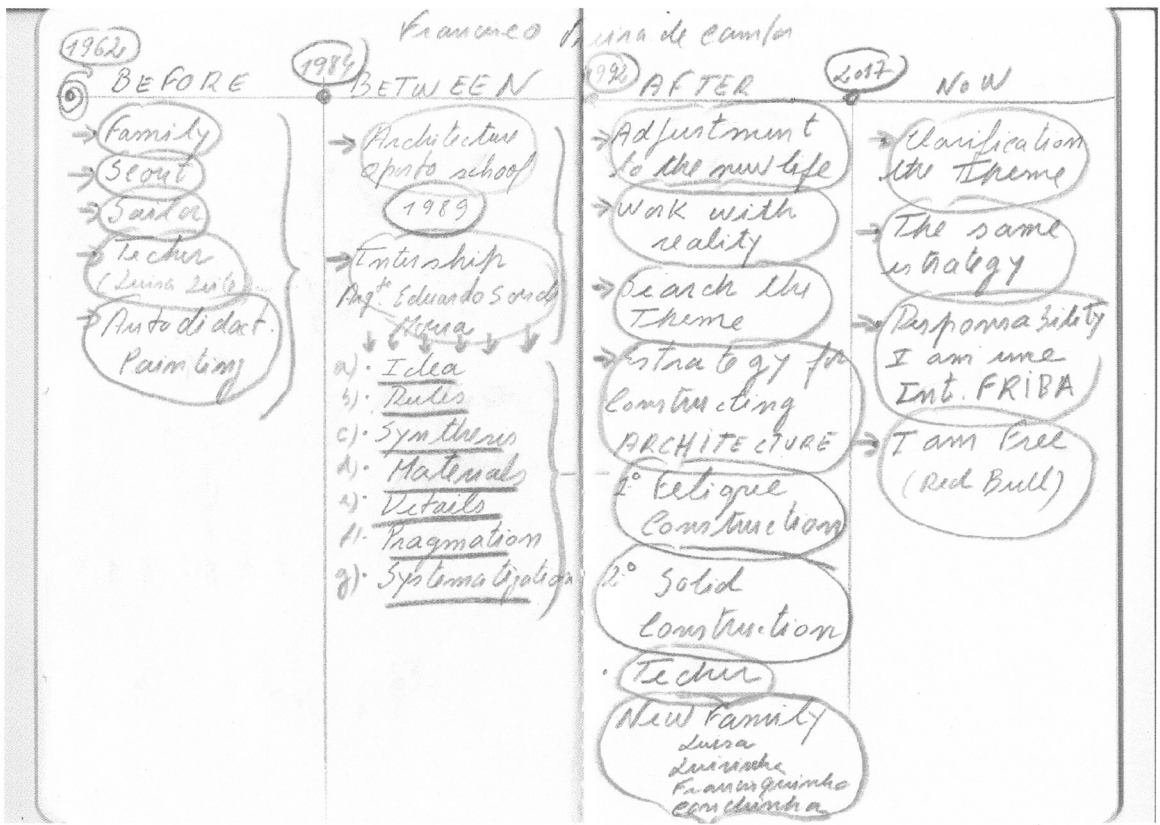 Francisco Vieira de Campos
1962
BEFORE
Family
Scout
Sailor
Techer
(Luisa Leite)
Autodidact.
Painting
1984
BETWEEN
Architecture
Oporto school
1989
Intership
Arqtº Eduardo Souto
Moura
a). Idea
b). Rules
c). Synthesis
d). Materials
e). Details
f). Pragmation
g). Systematization
1992
AFTER
Adjustment
to the new life
Work with
reality
Search the
Theme
Estrategy for
Constructing
ARCHITECTURE
1º Fetigue
Construction
2º Solid
Construction
. Techer
New Family
Luisa
Luisinha
Francisquinho
Conchinha
2017
NOW
Clarification
the Theme
The same
estrategy
Responsability
I am une
Int. FRIBA
I am Free
(Red Bull)